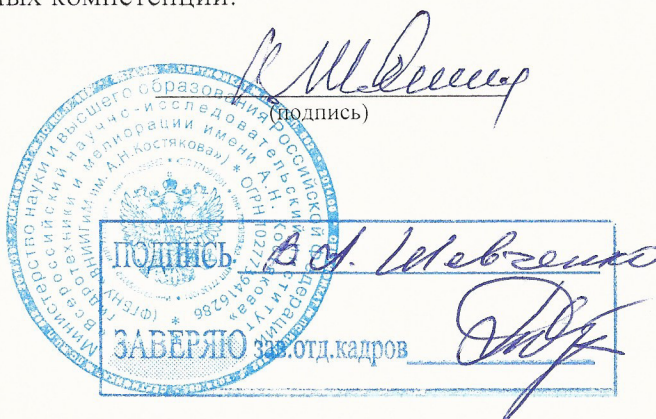 ных компетенций.
(подпись)
Министерство науки и высшего образования Российской Федерации
Всероссийский научно-исследовательский институт
гидротехники и мелиорации имени А.Н. Костякова»
(ФГБНУ «ВНИИГиМ им. А.Н.Костякова») * ОГРН 1027739416286 *
ПОДПИСЬ В.А. Шевченко
ЗАВЕРЯЮ зав.отд.кадров